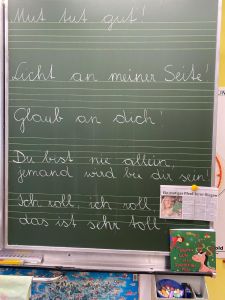 Mut tut gut!
Licht an meiner Seite!
Glaub an dich!
Du bist nie allein,
jemand wird bei dir sein!
Ich roll, ich roll
das ist sehr toll